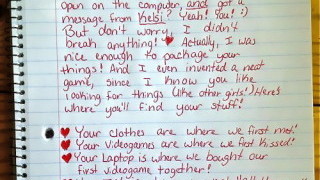 open on the computer, and got a
message from Kelsi? Yeah! You! :)
But don't worry, I didn't
break anything! ♥ Actually, I was
nice enough to package your
things! And I even invented a neat
game, since I know you like
looking for things (like other girls)! Here's
where you'll find your stuff!
♥ Your clothes are where we first met!
♥ Your Videogames are where we first kissed!
♥ Your Laptop is where we bought our
first videogame together!